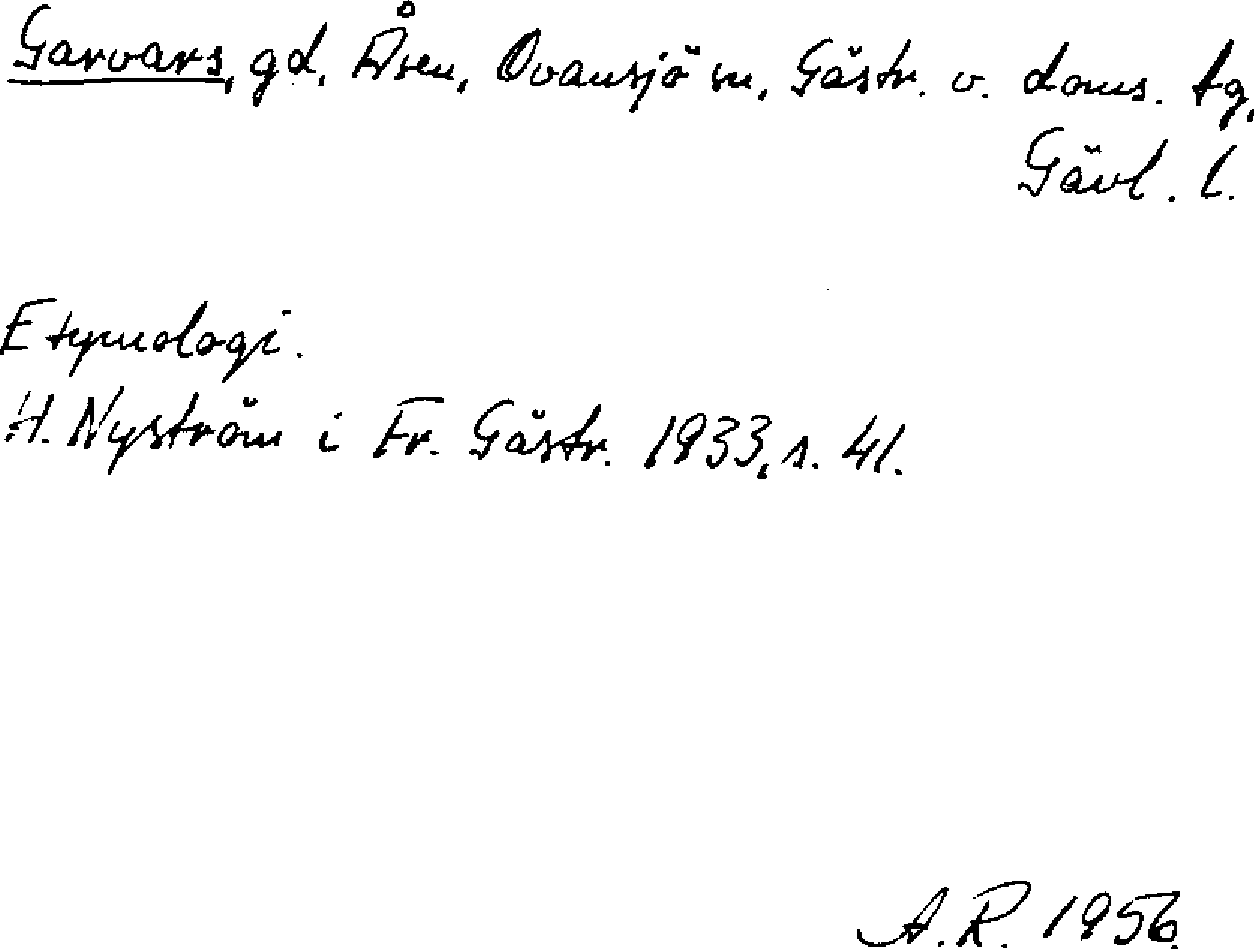 Garvars, gd, Åsen, Ovansjö sn, Gästr. v. doms. tg,
Gävl. l.
Etymologi.
H. Nyström i Fr. Gästr. 1933, s. 41.
A.R. 1956.